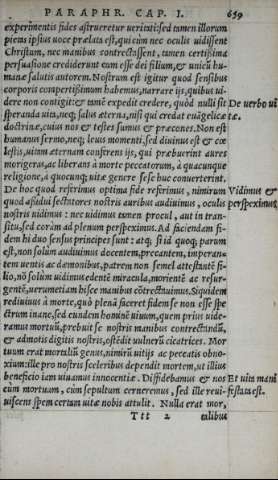 PARAPHR. CAP. I. 659
experimentis fides astrueretur uerinti: sed tamen illorum
pietas ipsius uoce prælata est, qui cùm nec oculis uidissent
Christum, nec manibus contrectassent, tamen certissima
persuasione crediderunt eum esse dei filium, & unicū hu-
manæ salutis autorem. Nostrum est igitur quod sensibus
corporis compertissimum habemus, narrare ijs, quibus ui-
dere non contigit: & tamē expedit credere, quòd nulli sit De uerbo ui
speranda uita, neq; salus æterna, nisi qui credat euāgelicæ tæ.
doctrinæ, cuius nos & testes sumus & præcones. Non est
humanus sermo, neq; leuis momenti, sed diuinus est & cœ
lestis, uitam æternam conferens ijs, qui præbuerint aures
morigeras, ac liberans à morte peccatorum, à quacunque
religione, à quocunq; uitæ genere sese huc conuerterint.
De hoc quod referimus optima fide referimus, nimirum Vidimus &
quod assidui sectatores nostris auribus audiuimus, oculis perspeximus
nostris uidimus: nec uidimus tantum procul, aut in tran-
situ, sed coràm ad plenum perspeximus. Ad faciendam fi-
dem hi duo sensus principes sunt: atq; si id quoq; parum
est, non solùm audiuimus docentem, precantem, imperan-
tem uentis ac dæmonibus, patrem non semel attestantē fi-
lio, nō solùm uidimus edentē miracula, morientē ac resur-
gentē, uerumetiam hisce manibus cōtrectauimus. Siquidem
rediuiuus à morte, quò plenā faceret fidem se non esse spe
ctrum inane, sed eundem hominē uiuum, quem prius uide-
ramus mortuū, præbuit se nostris manibus contrectandū,
& admotis digitis nostris, ostēdit uulnerū cicatrices. Mor
tuum erat mortaliū genus, nimirū uitijs ac peccatis obno-
xium: ille pro nostris sceleribus dependit mortem, ut illius
beneficio iam uiuamus innocentiæ. Diffidebamus & nos Et uita mani
cum mortuum, cùm sepultum cerneremus, sed ille reui- festata est.
uiscens spem certam uitæ nobis attulit. Nulla erat mor,
Ttt 2 talibus